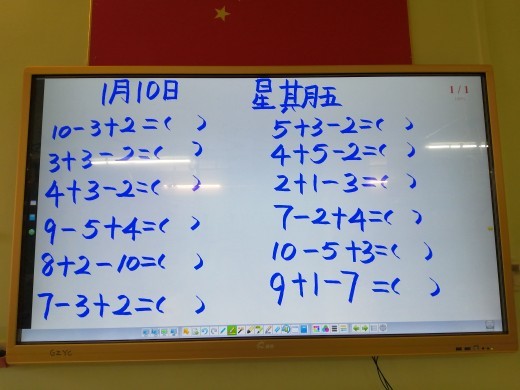 1月10日 星期五
1/1
10-3+2=( ) 5+3-2=( )
3+3-2=( ) 4+5-2=( )
4+3-2=( ) 2+1-3=( )
9-5+4=( ) 7-2+4=( )
8+2-10=( ) 10-5+3=( )
7-3+2=( ) 9+1-7=( )